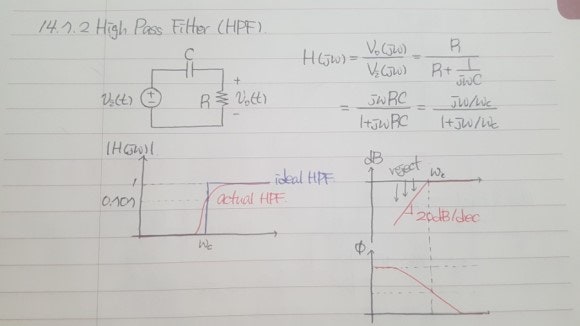 14.7.2 High Pass Filter (HPF)
C
Vs(t)
R
+
Vo(t)
-
H(jω) = Vo(jω) / Vs(jω) = R / R + 1/jωC
= jωRC / 1+jωRC = jω/ωc / 1+jω/ωc
|H(jω)|
1
0.707
ideal HPF
actual HPF
ωc
dB
reject
ωc
20dB/dec
Φ